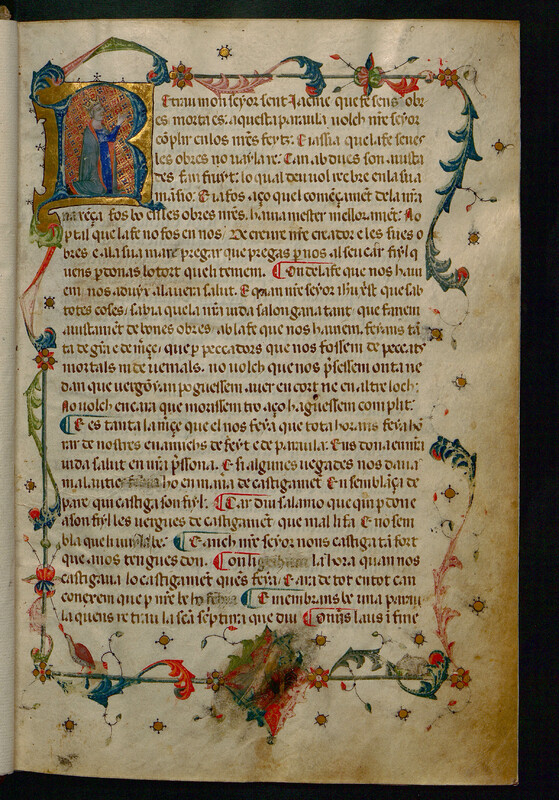 Retrau mon seyor sent Jacme que fe sens obr
es morta es: aquesta paraula volch nre seyor
cõplir en los nres feyts: E iassia que la fe senes
les obres no vayla re: Can abdues son aiusta
des fan fruyt: lo qual deu vol reebre en la sua
masio: E ia fos aço quel començamẽt de la nra
naxẽça fos bo en les obres nres, hauia mester mellorament: No
per tal que la fe no fos en nos, De creure nre creador e les sues o
bres e a la sua mare pregar que pregas per nos al seu car fiyl q
uens perdonas lo tort queli teniem. On de la fe que nos haui
em, nos aduyx a la uera salut. E quan nre seyor ihu xpst que sab
totes coses, sabia que la nra uida salongaria tant, que fariem
aiustament de bones obres, ab la fe que nos hauiem, feyans tã
ta de gra e de mçe, que per peccadors que nos fossem de peccats
mortals ni de uenials, no volch que nos presessem onta ne
dan que vergoyan poguessem auer en cort ne en altre loch:
No volch encara que morissem tro aço haguessem complit.
E es tanta la mçe que el nos feya que tota hora ns feya ho
rar de nostres enamichs de feyt e de paraula: Ens dona en nra
uida salut en nra persona. E si algunes uegades nos daua
malauties ho en mãa de castigamẽt En semblãça de
pare qui castiga son fiyl: Car diu salamo que qui perdone
a son fiyl les uergues de castigamẽt que mal li fa E no sem
bla que li Enich nre seyor nons castiga tã fort
que a nos tengues don. la hora quan nos
castigaua lo castigamẽt quẽs feya: E ara de tot en tot can
conexem que per nre be ho E membrans be una parau
la quens retrau la scã scriptura que diu Omnis laus i fine